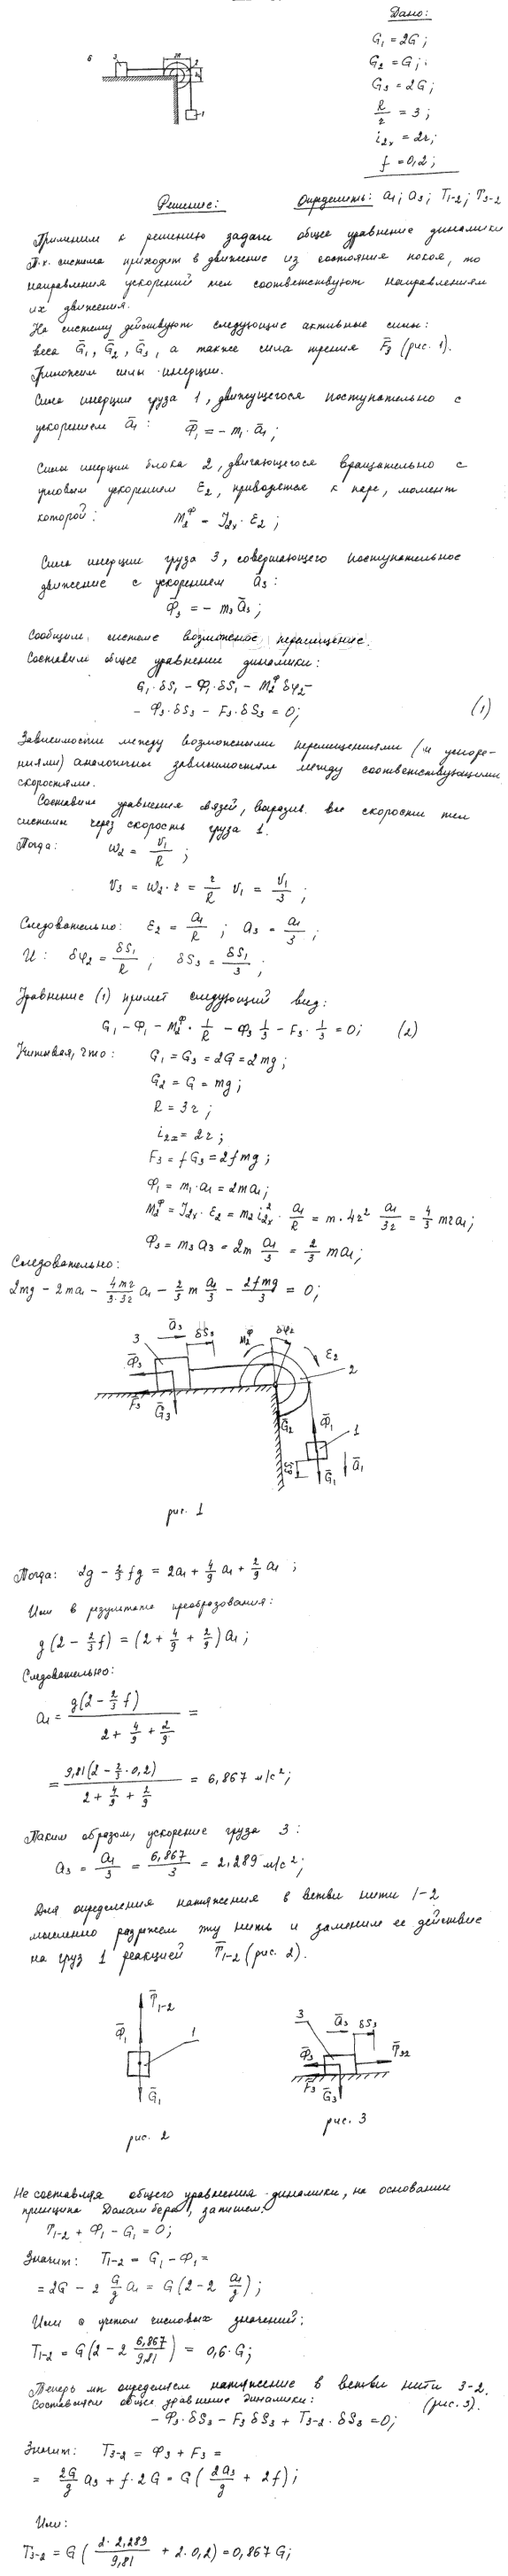 Дано:
G₁ = 2G;
G₂ = G;
G₃ = 2G;
R/r = 3;
i₂ₓ = 2r;
f = 0,2;
6 3 2R 2 1
Решение: Определить: a₁; a₃; T₁₋₂; T₃₋₂
Применим к решению задачи общее уравнение динамики
Т.к. система приходит в движение из состояния покоя, то
направления ускорений тел соответствуют направлениям
их движения.
На систему действуют следующие активные силы:
веса G̅₁, G̅₂, G̅₃, а также сила трения F̅₃ (рис. 1).
Приложим силы инерции.
Сила инерции груза 1, движущегося поступательно с
ускорением a̅₁: Φ̅₁ = – m₁·a̅₁;
Силы инерции блока 2, двигающегося вращательно с
угловым ускорением ε₂, приводятся к паре, момент
которой: M₂^Φ = J₂ₓ·ε₂;
Сила инерции груза 3, совершающего поступательное
движение с ускорением a̅₃:
Φ̅₃ = – m₃ a̅₃;
Сообщим системе возможное перемещение.
Составим общее уравнение динамики:
G₁·δS₁ – Φ₁·δS₁ – M₂^Φ δφ₂ –
– Φ₃·δS₃ – F₃·δS₃ = 0; (1)
Зависимости между возможными перемещениями (и ускоре-
ниями) аналогичны зависимостям между соответствующими
скоростями.
Составим уравнения связей, выразив все скорости тел
системы через скорость груза 1.
Тогда: ω₂ = V₁/R;
V₃ = ω₂·r = r/R V₁ = V₁/3;
Следовательно: ε₂ = a₁/R; a₃ = a₁/3;
И: δφ₂ = δS₁/R; δS₃ = δS₁/3;
Уравнение (1) примет следующий вид:
G₁ – Φ₁ – M₂^Φ·1/R – Φ₃ 1/3 – F₃·1/3 = 0; (2)
Учитывая, что: G₁ = G₃ = 2G = 2mg;
G₂ = G = mg;
R = 3r;
i₂ₓ = 2r;
F₃ = fG₃ = 2fmg;
Φ₁ = m₁·a₁ = 2ma₁;
M₂^Φ = J₂ₓ·ε₂ = m₂i₂ₓ²·a₁/R = m·4r² a₁/3r = 4/3 mra₁;
Φ₃ = m₃a₃ = 2m a₁/3 = 2/3 ma₁;
Следовательно:
2mg – 2ma₁ – 4mr/3·3r a₁ – 2/3 m a₁/3 – 2fmg/3 = 0;
a̅₃ δS₃ M₂^Φ δφ₂
3 Φ̅₃ ε₂ 2
F̅₃ G̅₃ G̅₂ Φ̅₁ 1
δS₁ G̅₁ a̅₁
рис. 1
Тогда: 2g – 2/3 fg = 2a₁ + 4/9 a₁ + 2/9 a₁;
Или в результате преобразования:
g(2 – 2/3 f) = (2 + 4/9 + 2/9) a₁;
Следовательно:
a₁ = g(2 – 2/3 f) / (2 + 4/9 + 2/9) =
= 9,81(2 – 2/3·0,2) / (2 + 4/9 + 2/9) = 6,867 м/с²;
Таким образом, ускорение груза 3:
a₃ = a₁/3 = 6,867/3 = 2,289 м/с²;
Для определения натяжения в ветви нити 1-2
мысленно разрежем эту нить и заменим ее действие
на груз 1 реакцией T̅₁₋₂ (рис. 2).
T̅₁₋₂ Φ̅₁ 1 G̅₁
рис. 2
3 a̅₃ δS₃ Φ̅₃ T̅₃₂ F̅₃ G̅₃
рис. 3
Не составляя общего уравнения динамики, на основании
принципа Даламбера, запишем:
T₁₋₂ + Φ₁ – G₁ = 0;
Значит: T₁₋₂ = G₁ – Φ₁ =
= 2G – 2 G/g a₁ = G(2 – 2 a₁/g);
Или с учетом числовых значений:
T₁₋₂ = G(2 – 2 6,867/9,81) = 0,6·G;
Теперь мы определяем натяжение в ветви нити 3-2.
Составляем общее уравнение динамики: (рис. 3).
– Φ₃·δS₃ – F₃ δS₃ + T₃₋₂·δS₃ = 0;
Значит: T₃₋₂ = Φ₃ + F₃ =
= 2G/g a₃ + f·2G = G(2a₃/g + 2f);
Или:
T₃₋₂ = G(2·2,289/9,81 + 2·0,2) = 0,867 G;